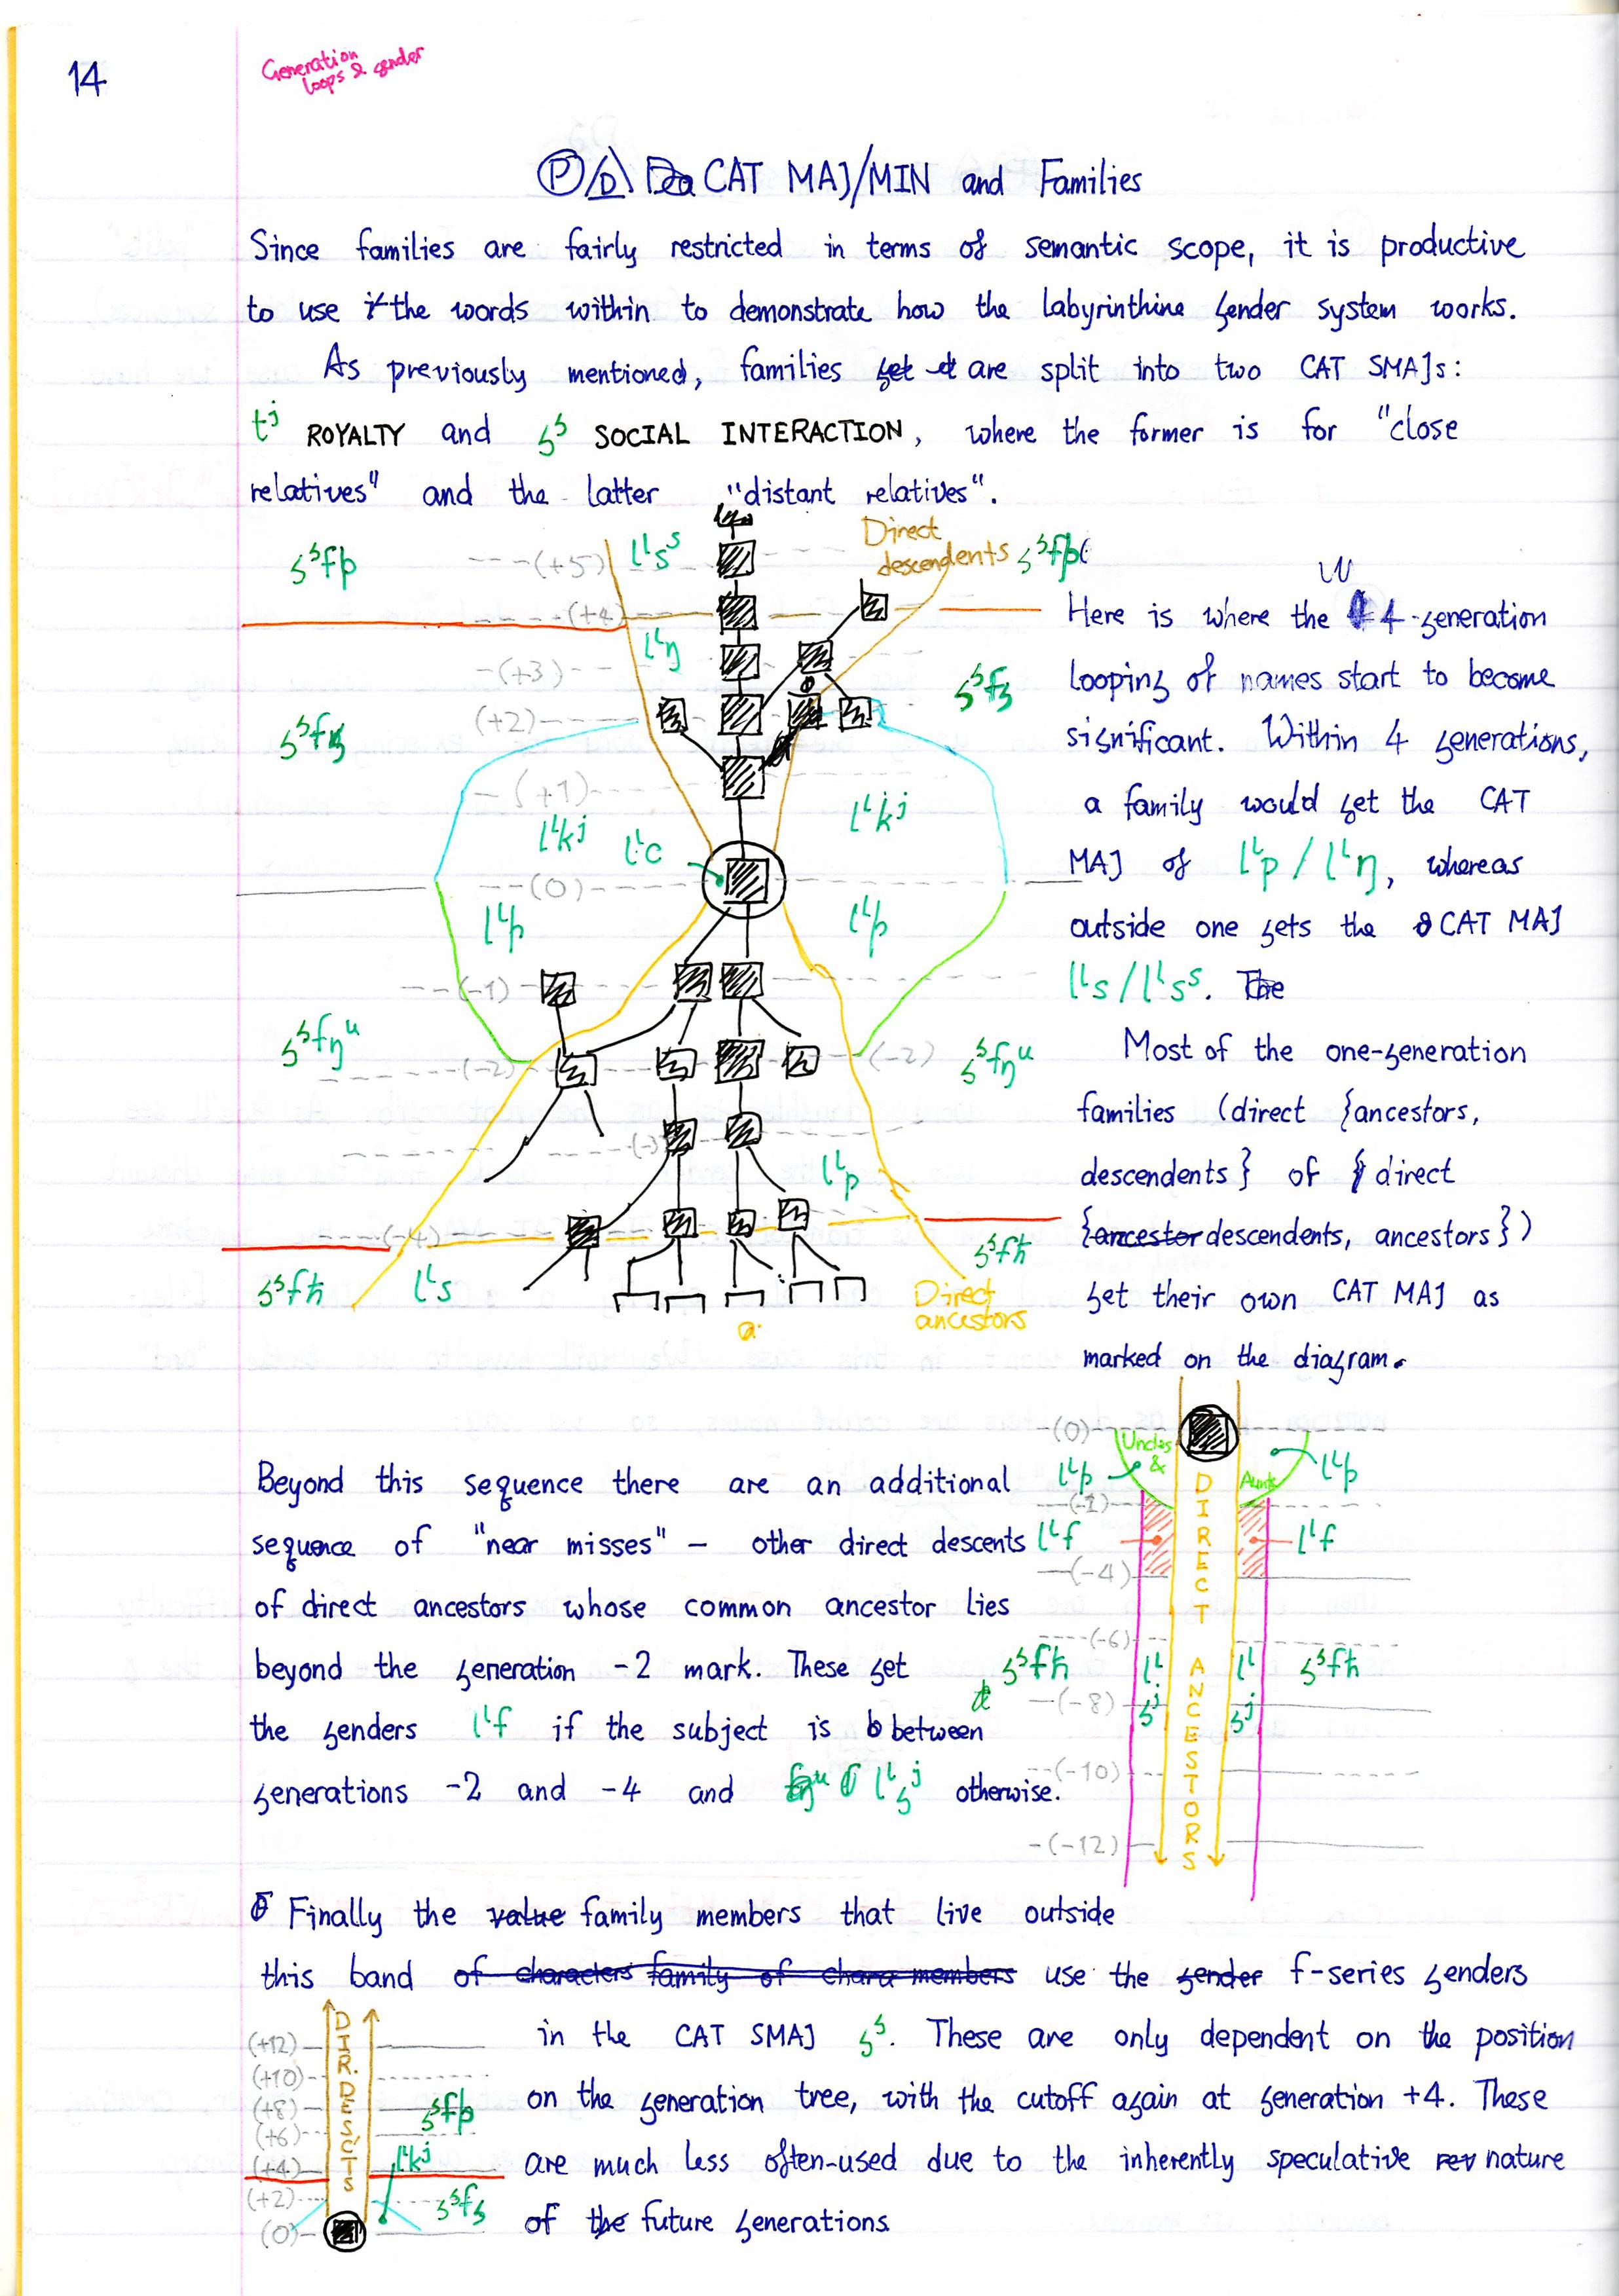 14
Generation
loops & gender
Ⓟ/D CAT MAJ/MIN and Families
Since families are fairly restricted in terms of semantic scope, it is productive
to use the words within to demonstrate how the labyrinthine gender system works.
As previously mentioned, families are split into two CAT SMAJs:
tʲ ROYALTY and ʒˢ SOCIAL INTERACTION, where the former is for "close
relatives" and the latter "distant relatives".
Direct
descendents
(+5)
(+4)
(+3)
(+2)
(+1)
(0)
(-1)
(-2)
(-2)
(-3)
(-4)
Direct
ancestors
Here is where the 4-generation
looping of names start to become
significant. Within 4 generations,
a family would get the CAT
MAJ of lᴸp / lᴸŋ, whereas
outside one gets the CAT MAJ
lᴸs / lᴸsˢ.
Most of the one-generation
families (direct {ancestors,
descendents} of direct
{ancestor descendents, ancestors})
get their own CAT MAJ as
marked on the diagram.
Beyond this sequence there are an additional
sequence of "near misses" – other direct descents
of direct ancestors whose common ancestor lies
beyond the generation -2 mark. These get
the genders lᴸf if the subject is between
generations -2 and -4 and lᴸʒʲ otherwise.
(0)
Uncles
&
Aunts
(-1)
(-4)
(-6)
(-8)
(-10)
(-12)
DIRECT ANCESTORS
Finally the value family members that live outside
this band of characters family of chara members use the gender f-series genders
in the CAT SMAJ ʒˢ. These are only dependent on the position
on the generation tree, with the cutoff again at generation +4. These
are much less often-used due to the inherently speculative nature
of the future generations
DIR. DESC'TS
(+12)
(+10)
(+8)
(+6)
(+4)
(+2)
(0)